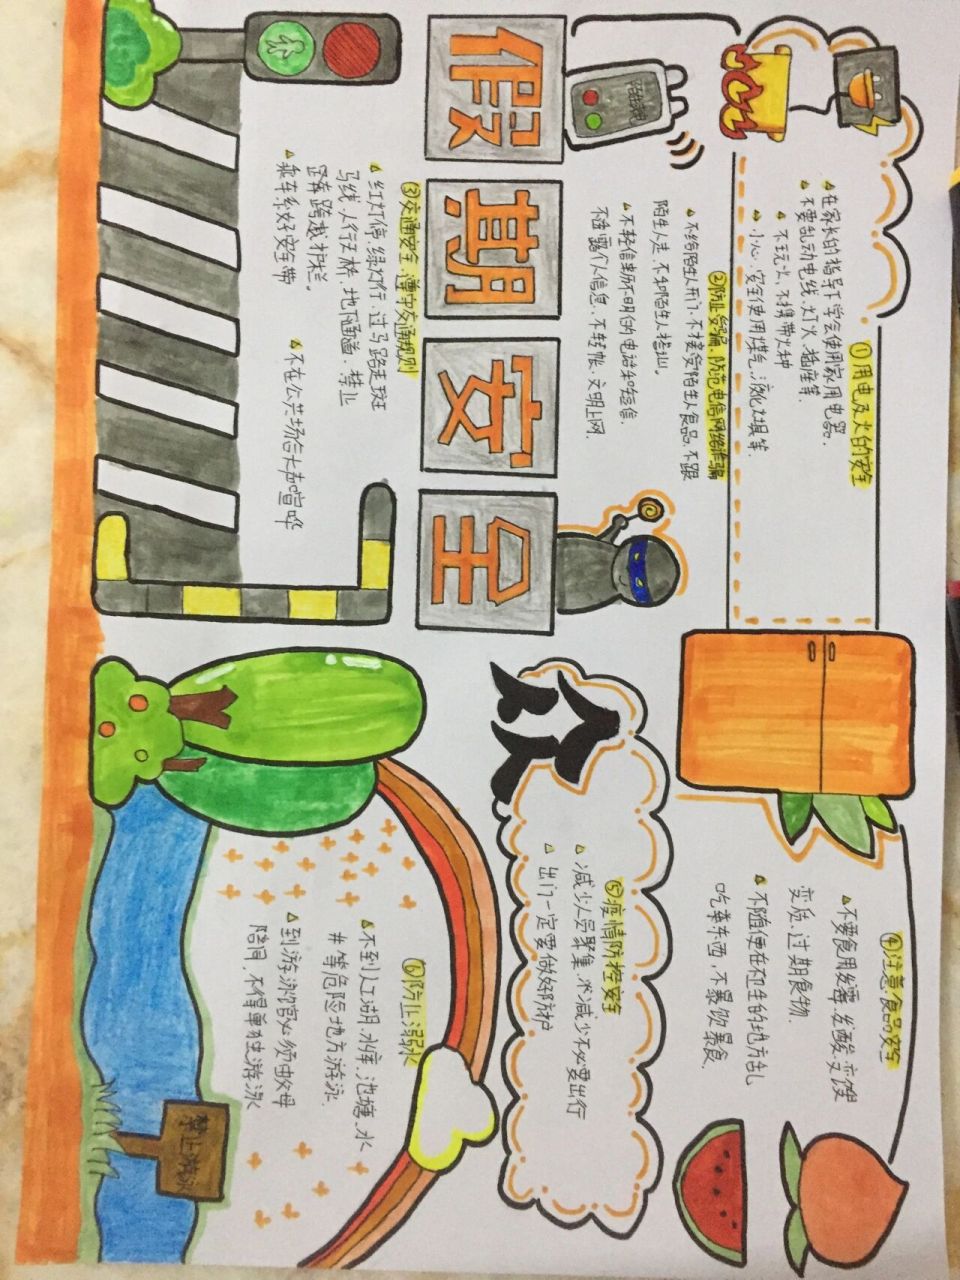 假期安全
①用电及火的安全
▲在家长的指导下学会使用家用电器.
▲不要乱动电线、灯火、插座等.
▲不玩火、不携带火种
▲小心、安全使用煤气、液化灶具等.
②防止受骗、防范电信网络诈骗
▲不给陌生人开门、不接受陌生人食品、不跟
陌生人走、不和陌生人搭讪。
▲不轻信来历不明的电话和短信.
不透露个人信息、不转帐、文明上网.
陌生来电
③交通安全、遵守交通规则
▲红灯停、绿灯行、过马路走斑
马线、人行天桥、地下通道、禁止
跨越护栏。
▲乘车系好安全带
▲不在公共场合大声喧哗
④注意食品安全
▲不要食用发霉、发酸、变馊
变质、过期食物.
▲不随便在不卫生的地方乱
吃东西,不暴饮暴食.
⑤疫情防控安全
▲减少人员聚集,减少不必要出行
▲出门一定要做好防护
⑥防止溺水
▲不到江、湖、水库、池塘、水
井等危险地方游泳.
▲到游泳馆必须由父母
陪同,不得单独游泳
禁止游泳